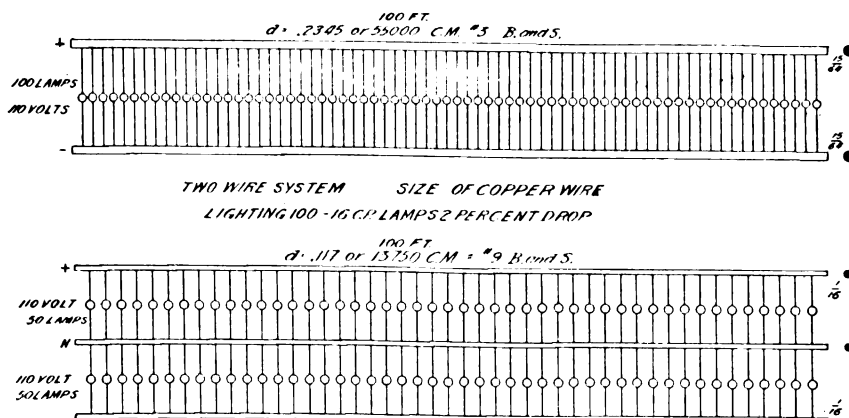 100 FT.
d = .2345 or 55000 C.M. #3 B. and S.
+
15/64
100 LAMPS
110 VOLTS
-
15/64
TWO WIRE SYSTEM SIZE OF COPPER WIRE
LIGHTING 100 - 16 C.P. LAMPS 2 PERCENT DROP
100 FT.
d = .117 or 13750 C.M. = #9 B. and S.
+
1/16
110 VOLT
50 LAMPS
N
110 VOLT
50 LAMPS
1/16